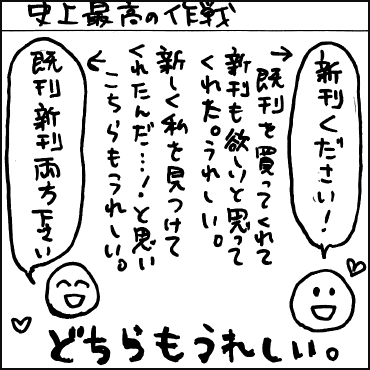 史上最高の作戦
新刊ください!
→既刊を買ってくれて
新刊も欲しいと思って
くれた。うれしい。
新しく私を見つけて
くれたんだ…!と思い
こちらもうれしい。
←
既刊新刊両方下さい
どちらもうれしい。